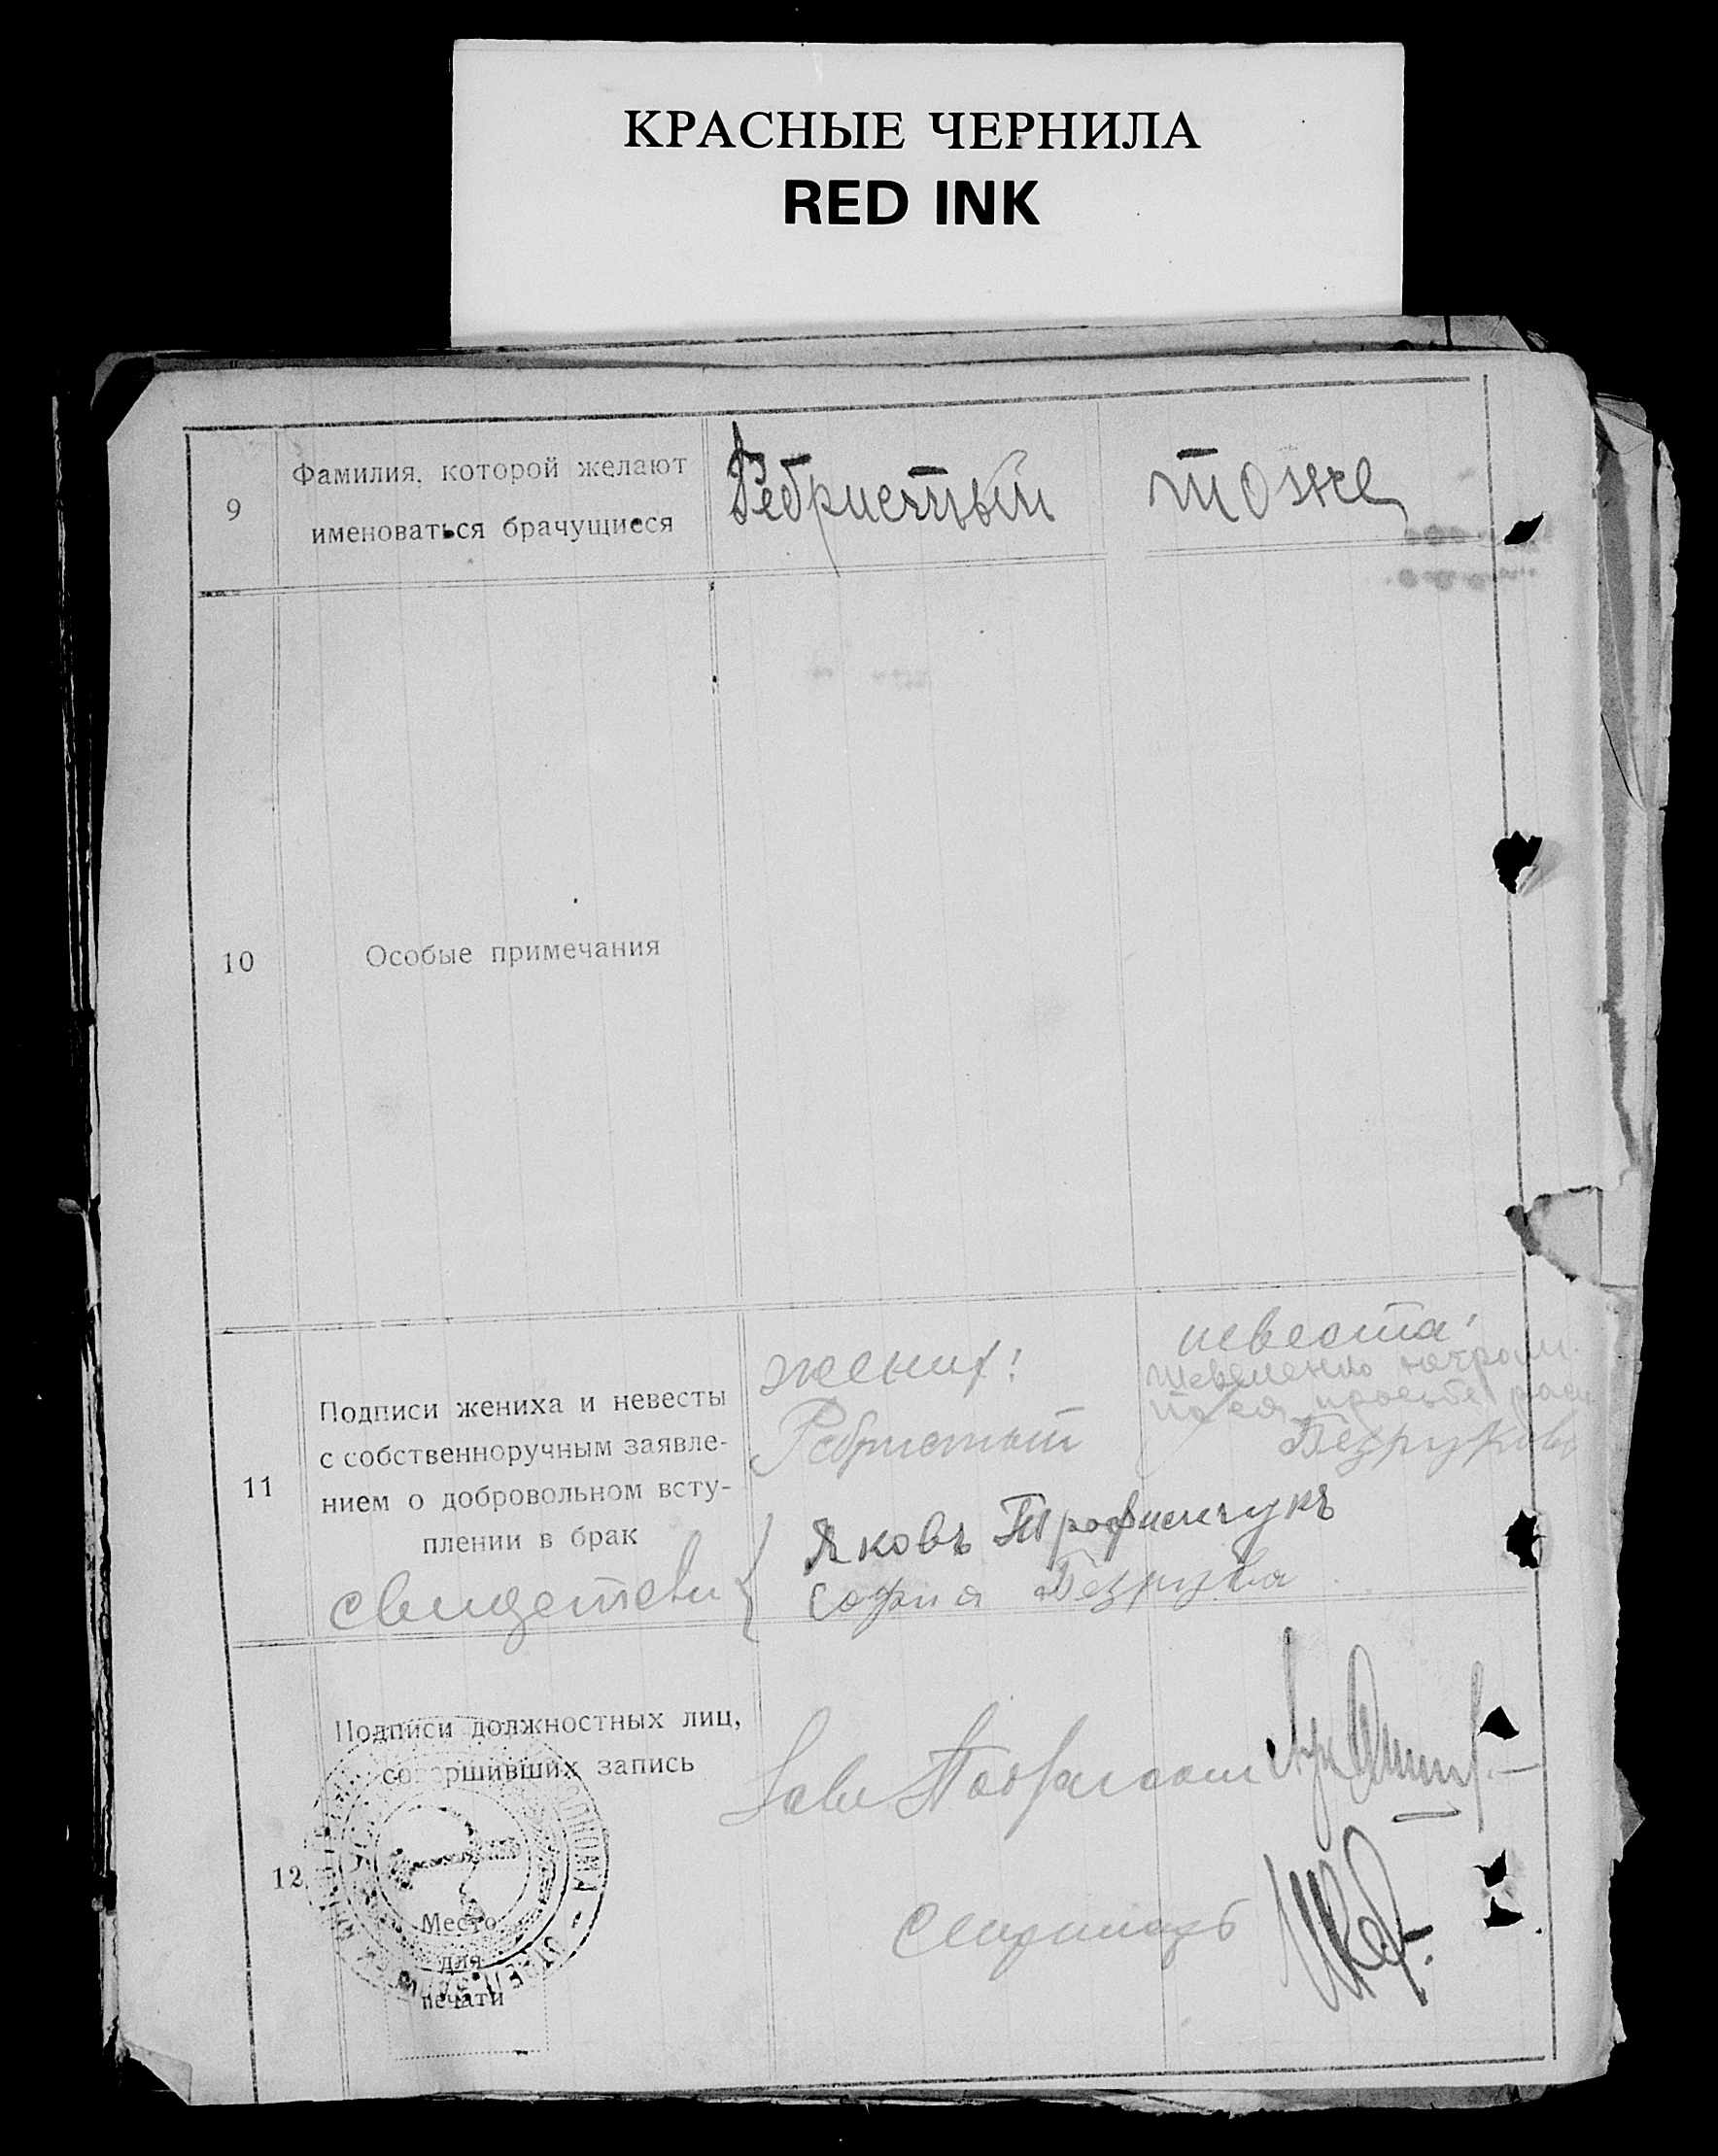 КРАСНЫЕ ЧЕРНИЛА
RED INK
9
Фамилия, которой желают
именоваться брачущиеся
Ребристый
тоже
10
Особые примечания
11
Подписи жениха и невесты
с собственноручным заявле-
нием о добровольном всту-
плении в брак
жених!
Ребристый
невеста!
по ея просьбе
Яковъ Трофимчукъ
София
свидетели
12
Подписи должностных лиц,
совершивших запись
Место
для
печати